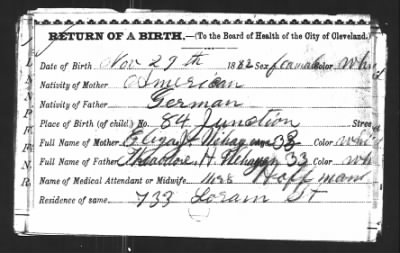 RETURN OF A BIRTH.—(To the Board of Health of the City of Cleveland.)
Date of Birth Nov 27th 1882 Sex female Color Whi
Nativity of Mother American
Nativity of Father German
Place of Birth (of child.) No. 84 Junction Stree
Full Name of Mother Eliza 33 Color whi
Full Name of Father Theodore H. 33 Color wh
Name of Medical Attendant or Midwife Hoffman
Residence of same, 733 Lorain St